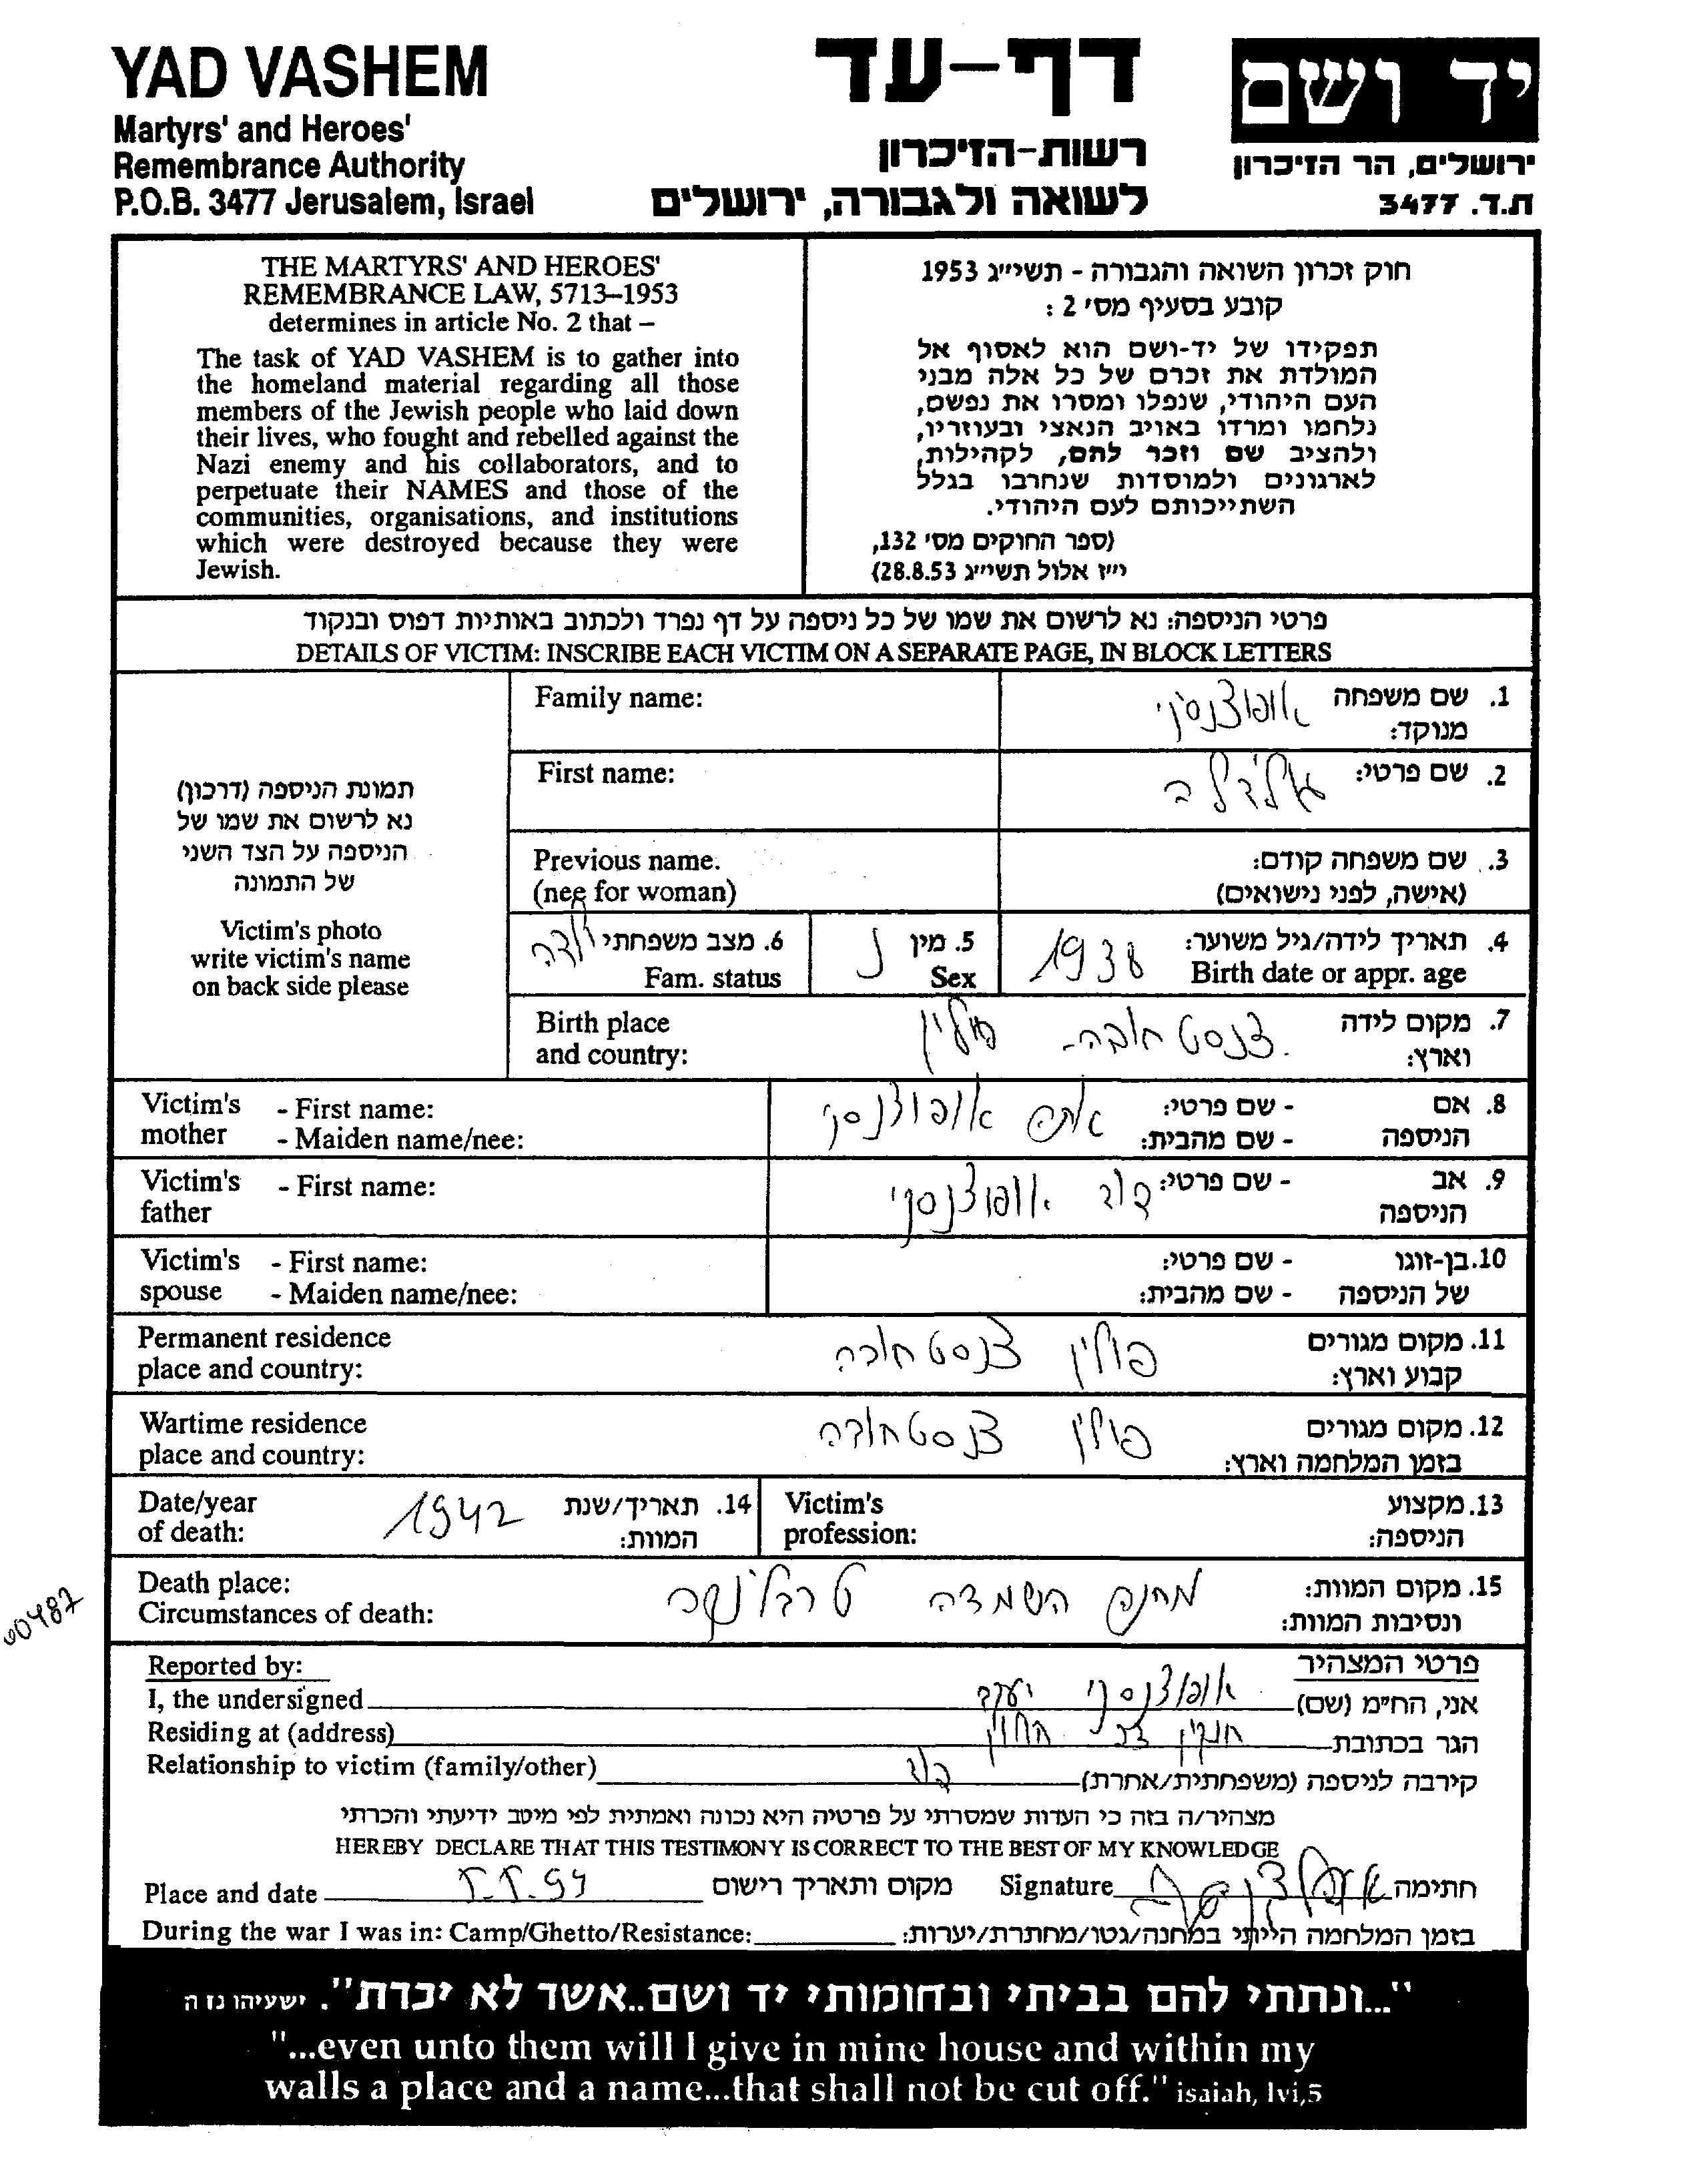 YAD VASHEM
Martyrs' and Heroes'
Remembrance Authority
P.O.B. 3477 Jerusalem, Israel
דף-עד
רשות-הזיכרון
לשואה ולגבורה, ירושלים
יד ושם
ירושלים, הר הזיכרון
ת.ד. 3477
THE MARTYRS' AND HEROES'
REMEMBRANCE LAW, 5713–1953
determines in article No. 2 that –
The task of YAD VASHEM is to gather into
the homeland material regarding all those
members of the Jewish people who laid down
their lives, who fought and rebelled against the
Nazi enemy and his collaborators, and to
perpetuate their NAMES and those of the
communities, organisations, and institutions
which were destroyed because they were
Jewish.
חוק זכרון השואה והגבורה - תשי״ג 1953
קובע בסעיף מס' 2 :
תפקידו של יד-ושם הוא לאסוף אל
המולדת את זכרם של כל אלה מבני
העם היהודי, שנפלו ומסרו את נפשם,
נלחמו ומרדו באויב הנאצי ובעוזריו,
ולהציב שם וזכר להם, לקהילות,
לארגונים ולמוסדות שנחרבו בגלל
השתייכותם לעם היהודי.
(ספר החוקים מס' 132,
י״ז אלול תשי״ג 28.8.53)
פרטי הניספה: נא לרשום את שמו של כל ניספה על דף נפרד ולכתוב באותיות דפוס ובנקוד
DETAILS OF VICTIM: INSCRIBE EACH VICTIM ON A SEPARATE PAGE, IN BLOCK LETTERS
תמונת הניספה (דרכון)
נא לרשום את שמו של
הניספה על הצד השני
של התמונה
Victim's photo
write victim's name
on back side please
Family name:
1. שם משפחה אופוצנסקי
מנוקד:
First name:
2. שם פרטי:
Previous name.
(nee for woman)
3. שם משפחה קודם:
(אישה, לפני נישואים)
4. תאריך לידה/גיל משוער: 1938
Birth date or appr. age
5. מין נ
Sex
6. מצב משפחתי ילדה
Fam. status
Birth place
and country:
7. מקום לידה צנסטחובה - פולין
וארץ:
Victim's mother - First name:
- Maiden name/nee:
8. אם הניספה - שם פרטי: אופוצנסקי
- שם מהבית:
Victim's father - First name:
9. אב הניספה - שם פרטי: דוד אופוצנסקי
Victim's spouse - First name:
- Maiden name/nee:
10. בן-זוגו של הניספה - שם פרטי:
- שם מהבית:
Permanent residence
place and country:
11. מקום מגורים פולין צנסטחובה
קבוע וארץ:
Wartime residence
place and country:
12. מקום מגורים פולין צנסטחובה
בזמן המלחמה וארץ:
Date/year
of death:
14. תאריך/שנת 1942
המוות:
Victim's
profession:
13. מקצוע
הניספה:
Death place:
Circumstances of death:
15. מקום המוות: מחנה השמדה טרבלינקה
ונסיבות המוות:
00487
Reported by:
פרטי המצהיר
I, the undersigned
אני, הח״מ (שם) אופוצנסקי יעקב
Residing at (address)
הגר בכתובת חנקין חולון
Relationship to victim (family/other)
קירבה לניספה (משפחתית/אחרת) דוד
מצהיר/ה בזה כי העדות שמסרתי על פרטיה היא נכונה ואמתית לפי מיטב ידיעתי והכרתי
HEREBY DECLARE THAT THIS TESTIMONY IS CORRECT TO THE BEST OF MY KNOWLEDGE
Place and date
מקום ותאריך רישום
Signature
חתימה
During the war I was in: Camp/Ghetto/Resistance:
בזמן המלחמה הייתי במחנה/גטו/מחתרת/יערות:
"...ונתתי להם בביתי ובחומותי יד ושם..אשר לא יכרת". ישעיהו נז ה
"...even unto them will I give in mine house and within my
walls a place and a name...that shall not be cut off." isaiah, lvi,5